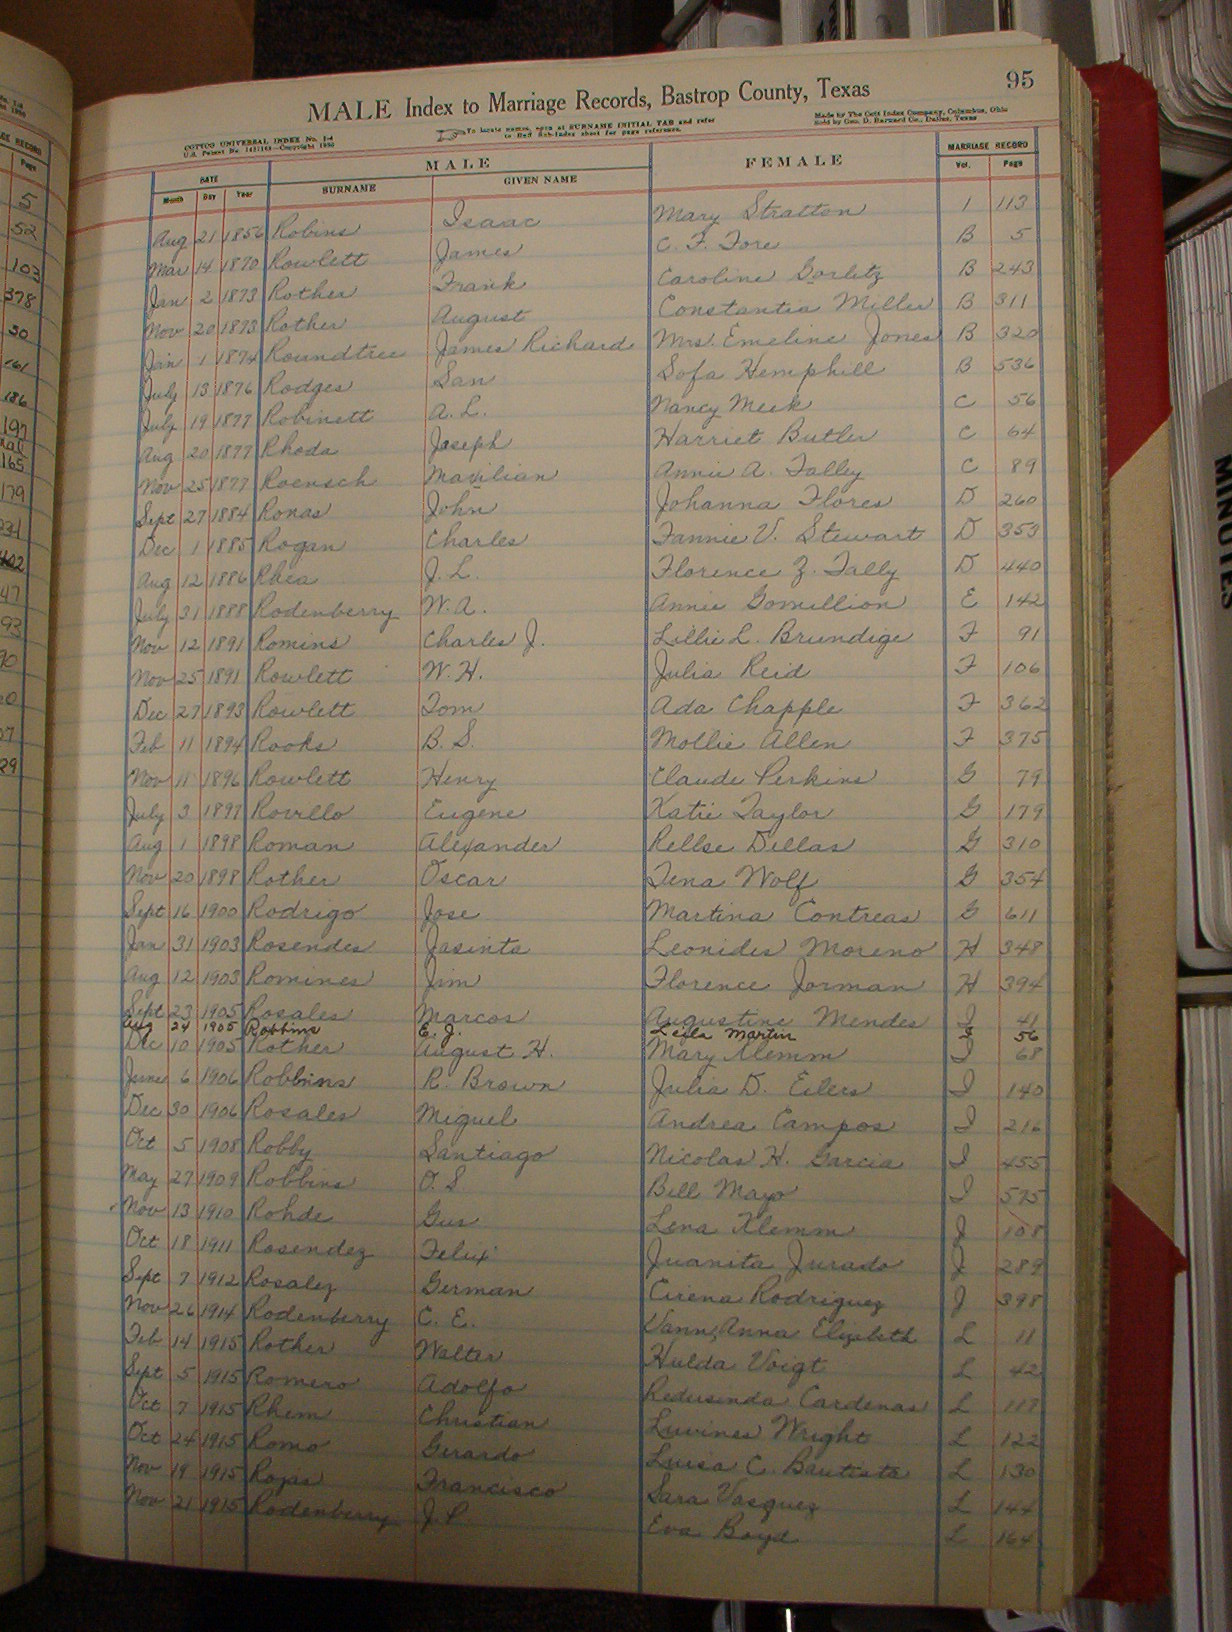 95
MALE Index to Marriage Records, Bastrop County, Texas
COTTCO UNIVERSAL INDEX No. 1-4
U.S. Patent No. Copyright 1936
To locate names, open at SURNAME INITIAL TAB and refer
to Sub-Index sheet for page reference.
Made by The Cott Index Company, Columbus, Ohio
Sold by Geo. D. Barnard Co., Dallas, Texas
DATE MALE FEMALE MARRIAGE RECORD
Month Day Year SURNAME GIVEN NAME Vol. Page
Aug 21 1856 Robins Isaac Mary Stratton 1 113
Mar 14 1870 Rowlett James C. F. Fore B 5
Jan 2 1873 Rother Frank Caroline Gorlitz B 243
Nov 20 1873 Rother August Constantia Miller B 311
Jan 1 1874 Roundtree James Richard Mrs. Emeline Jones B 320
July 13 1876 Rodges San Sofa Hemphill B 536
July 19 1877 Robinett A. L. Nancy Meek C 56
Aug 20 1877 Rhoda Joseph Harriet Butler C 64
Nov 25 1877 Roensch Maxilian Annie A. Talley C 89
Sept 27 1884 Ronas John Johanna Flores D 260
Dec 1 1885 Rogan Charles Fannie V. Stewart D 353
Aug 12 1886 Rhea J. L. Florence Z. Tally D 440
July 31 1888 Rodenberry W. A. Annie Gomillion E 142
Nov 12 1891 Romins Charles J. Lillie L. Brundige F 91
Nov 25 1891 Rowlett W. H. Julia Reid F 106
Dec 27 1893 Rowlett Tom Ada Chapple F 362
Feb 11 1894 Rooks B. S. Mollie Allen F 375
Nov 11 1896 Rowlett Henry Claude Perkins G 79
July 3 1897 Rovillo Eugene Katie Taylor G 179
Aug 1 1898 Roman Alexander Rellse Dellas G 310
Nov 20 1898 Rother Oscar Tena Wolf G 354
Sept 16 1900 Rodrigo Jose Martina Contreas G 611
Jan 31 1903 Rosendes Jasinta Leonides Moreno H 348
Aug 12 1903 Romines Jim Florence Jorman H 394
Sept 23 1905 Rosales Marcos Augustine Mendes I 41
Aug 24 1905 Robbins E. J. Leila Martin I 56
Dec 10 1905 Rother August H. Mary Klemm I 68
June 6 1906 Robbins R. Brown Julia D. Eilers I 140
Dec 30 1906 Rosales Miguel Andrea Campos I 216
Oct 5 1908 Robby Santiago Nicolas H. Garcia I 455
May 27 1909 Robbins O. S Bell Mayo I 575
Nov 13 1910 Rohde Gus Lena Klemm J 108
Oct 18 1911 Rosendez Felix Juanita Jurado J 289
Sept 7 1912 Rosalez German Cirena Rodriguez J 398
Nov 26 1914 Rodenberry C. E. Vann, Anna Elizabeth L 11
Feb 14 1915 Rother Walter Hulda Voigt L 42
Sept 5 1915 Romero Adolfo Redusinda Cardenas L 117
Oct 7 1915 Rhem Christian Luvines Wright L 122
Oct 24 1915 Romo Gerardo Luisa C. Bautista L 130
Nov 19 1915 Rojas Francisco Sara Vasquez L 144
Nov 21 1915 Rodenberry J. P Eva Boyd L 164
MINUTES
RECORD
Page
5
52
103
378
50
186
197
165
179